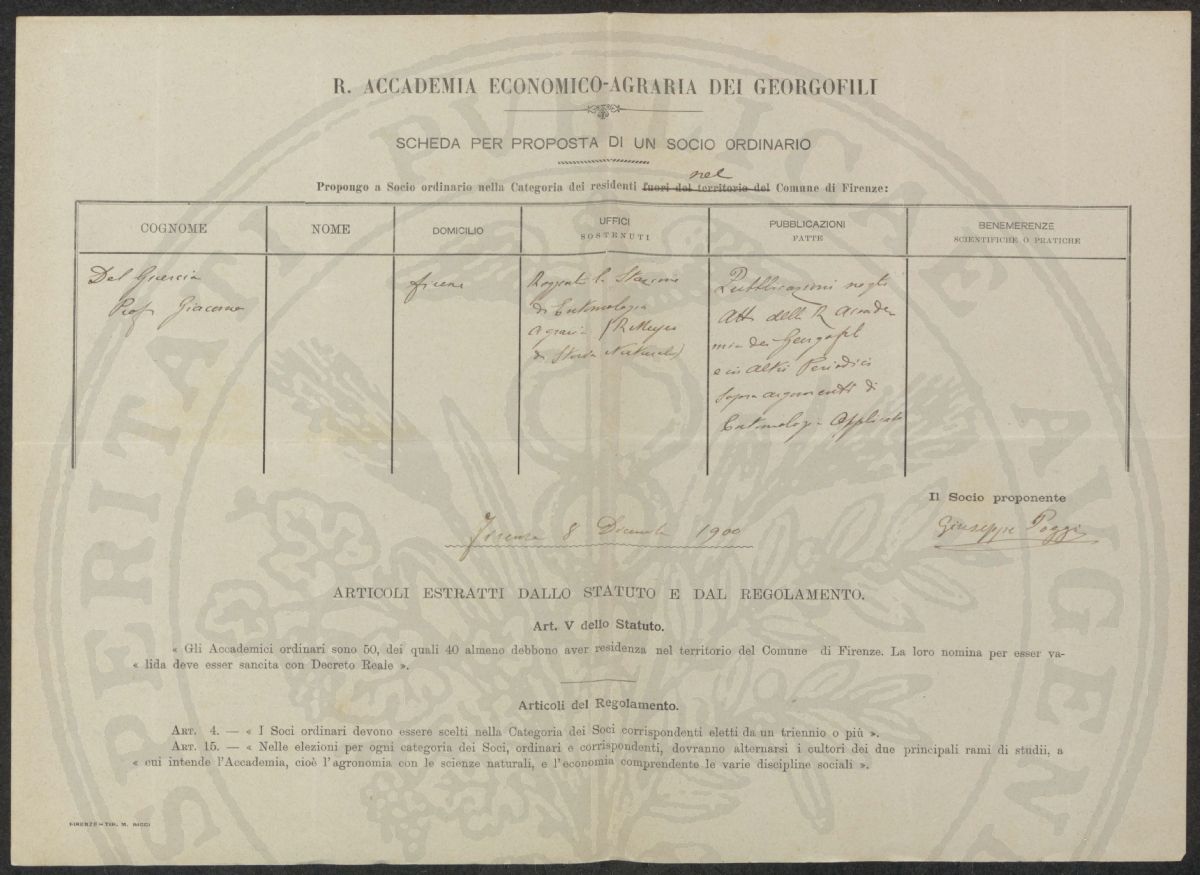 R. ACCADEMIA ECONOMICO-AGRARIA DEI GEORGOFILI
SCHEDA PER PROPOSTA DI UN SOCIO ORDINARIO
nel
Propongo a Socio ordinario nella Categoria dei residenti fuori del territorio del Comune di Firenze:
COGNOME
NOME
DOMICILIO
UFFICI
SOSTENUTI
PUBBLICAZIONI
FATTE
BENEMERENZE
SCIENTIFICHE O PRATICHE
Del Guercio
Prof Giacomo
Firenze
Stazione
di Entomologia
Agraria (R. Museo
di Storia Naturale)
Pubblicazioni negli
Atti della R Accade
mia dei Georgofili
e in altri Periodici
sopra argomenti di
Entomologia Applicata
Il Socio proponente
Giuseppe Poggi
Firenze 8 Dicembre 1900
ARTICOLI ESTRATTI DALLO STATUTO E DAL REGOLAMENTO.
Art. V dello Statuto.
« Gli Accademici ordinari sono 50, dei quali 40 almeno debbono aver residenza nel territorio del Comune di Firenze. La loro nomina per esser va-
« lida deve esser sancita con Decreto Reale ».
Articoli del Regolamento.
ART. 4. — « I Soci ordinari devono essere scelti nella Categoria dei Soci corrispondenti eletti da un triennio o più ».
ART. 15. — « Nelle elezioni per ogni categoria dei Soci, ordinari e corrispondenti, dovranno alternarsi i cultori dei due principali rami di studii, a
« cui intende l'Accademia, cioè l'agronomia con le scienze naturali, e l'economia comprendente le varie discipline sociali ».
FIRENZE — TIP. M. RICCI
PROSPERITATI PVBLICAE AVGENDAE